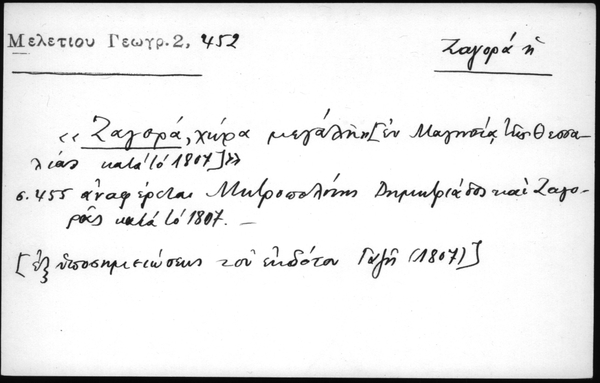 Μελετίου Γεωγρ. 2, 452
Ζαγορά ἡ
«Ζαγορά, χώρα μεγάλη [ἐν Μαγνησίᾳ τῆς Θεσσα-
λίας κατά τό 1807]»
σ. 455 ἀναφέρεται Μητροπολίτης Δημητριάδος καί Ζαγο-
ρᾶς κατά τό 1807. —
[ἐξ ὑποσημειώσεως τοῦ ἐκδότου Γαζῆ (1807)]